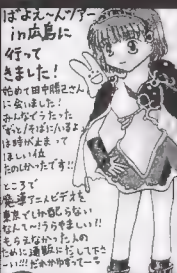 ぱよえ〜んツアー
in広島に
行って
きました!
始めて田中勝己さん
に会いました!
みんなでうたった
"ずっとそばにいるよ"
は時が止まって
ほしい位
たのしかったです!!
ところで
魔導アニメビデオを
東京でしか配らない
なんて〜!うらやましい!!
もらえなかった人の
ために通販にだして下さ
ーい!!